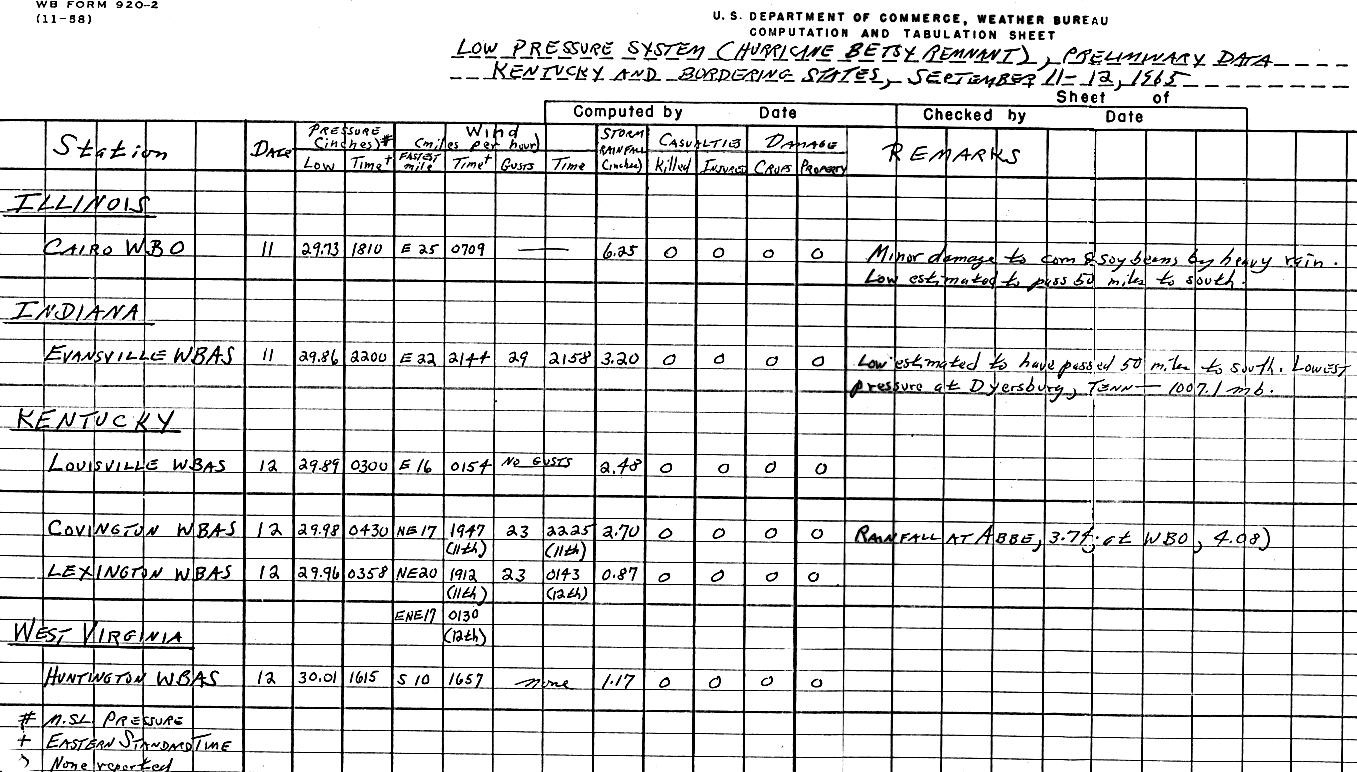 WB FORM 920-2
(11-58)
U. S. DEPARTMENT OF COMMERCE, WEATHER BUREAU
COMPUTATION AND TABULATION SHEET
LOW PRESSURE SYSTEM (HURRICANE BETSY REMNANT), PRELIMINARY DATA
KENTUCKY AND BORDERING STATES, SEPTEMBER 11-12, 1965
Sheet of
Computed by Date Checked by Date
Station DATE PRESSURE (inches)# Wind (miles per hour) STORM RAINFALL (inches) CASUALTIES DAMAGE REMARKS
LOW Time+ FASTEST mile Time+ GUSTS Time Killed INJURED CROPS PROPERTY
ILLINOIS
CAIRO WBO 11 29.73 1810 E 25 0709 — 6.25 0 0 0 0 Minor damage to corn & soybeans by heavy rain.
Low estimated to pass 50 miles to south.
INDIANA
EVANSVILLE WBAS 11 29.86 2200 E 22 2144 29 2158 3.20 0 0 0 0 Low estimated to have passed 50 miles to south. LOWEST
pressure at Dyersburg, TENN — 1007.1 mb.
KENTUCKY
LOUISVILLE WBAS 12 29.89 0300 E 16 0154 NO GUSTS 2.48 0 0 0 0
COVINGTON WBAS 12 29.98 0430 NE 17 1947 23 2225 2.70 0 0 0 0 RAINFALL AT ABBE, 3.74; at WBO, 4.08)
(11th) (11th)
LEXINGTON WBAS 12 29.96 0358 NE20 1912 23 0143 0.87 0 0 0 0
(11th) (12th)
ENE17 0130
WEST VIRGINIA (12th)
HUNTINGTON WBAS 12 30.01 1615 S 10 1657 none 1.17 0 0 0 0
# M.S.L PRESSURE
+ EASTERN STANDARD TIME
) None reported